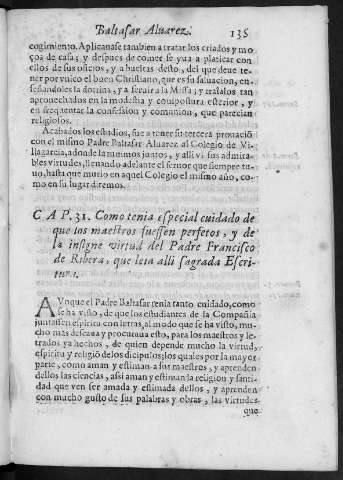 Baltasar Aluarez. 135
cogimiento. Aplicanase tambien a tratar los criados y mo
ços de casa; y despues de comer se yua a platicar con
ellos de sus oficios, y a bueltas desto, del que deue te-
ner por vnico el buen Christiano, que es su saluacion, en-
señandoles la dotrina, y a seruir a la Missa; y traialos tan
aprouechados en la modestia y compostura esterior, y
en frequentar la confession y comunion, que parecian
religiosos.
Acabados los estudios, fue a tener su tercera prouació
con el mismo Padre Baltasar Aluarez al Colegio de Vi-
llagarcia, adonde la tuuimos juntos, y alli vi sus admira-
bles virtudes, lleuando adelante el feruor que siempre tu-
uo, hasta que murio en aquel Colegio el mismo año, co-
mo en su lugar diremos.
CAP. 31. Como tenia especial cuidado de
que los maestros fuessen perfetos, y de
la insigne virtud del Padre Francisco
de Ribera, que leia alli sagrada Escri-
tura.
AVnque el Padre Baltasar tenia tanto cuidado, como
se ha visto, de que los estudiantes de la Compañia
juntassen espiritu con letras, al modo que se ha visto, mu-
cho mas deseaua y procuraua esto, para los maestros y le-
trados ya hechos, de quien depende mucho la virtud,
espiritu y religió de los dicipulos; los quales por la mayor
parte, como aman y estiman a sus maestros, y aprenden
dellos las ciencias, assi aman y estiman la religion y santi-
dad que ven ser amada y estimada dellos, y aprenden
con mucho gusto de sus palabras y obras, las virtudes
que